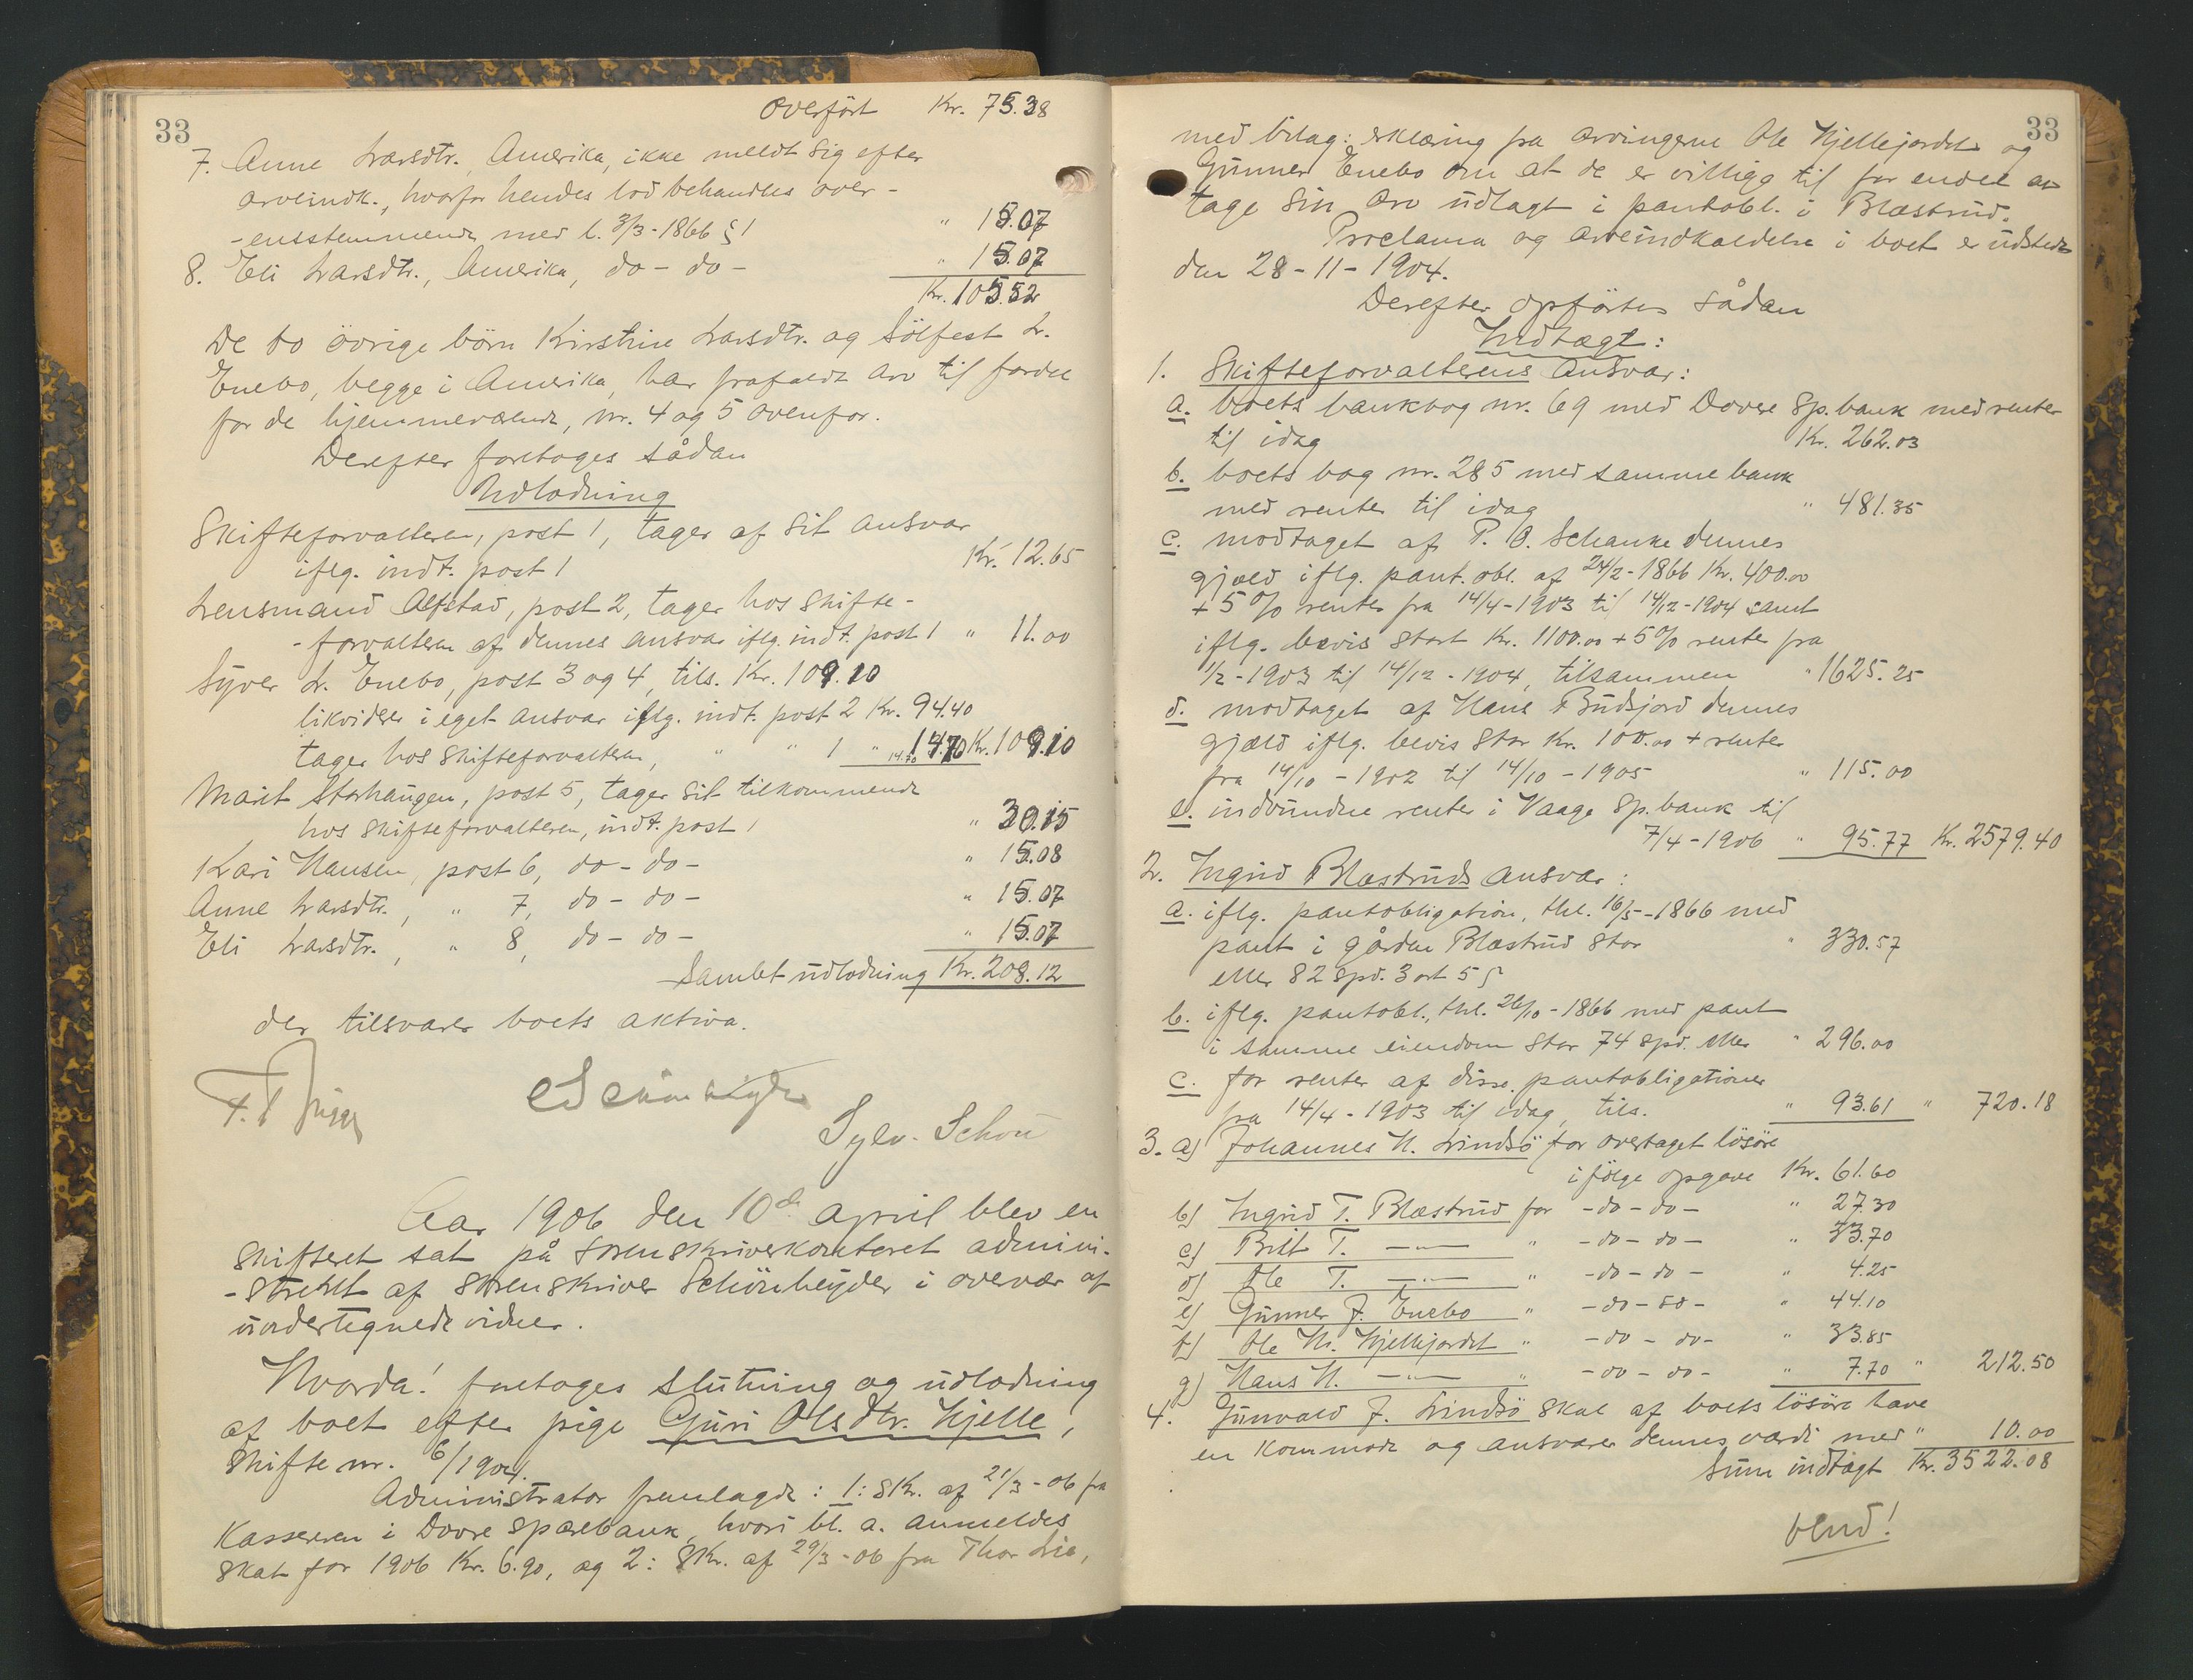 33
Overført Kr. 75.38
7. Anne Larsdtr. Amerika, ikke meldt sig efter
arveindk., hvorfor hendes lod behandles over-
-ensstemmende med l. 3/3-1866 § 1 " 15.07
8. Eli Larsdtr., Amerika, do - do - " 15.07
Kr. 105.52
De to övrige börn Kirstine Larsdtr. og Sölfest L.
Enebo, begge i Amerika, har frafaldt arv til fordel
for de hjemmeværende, nr. 4 og 5 ovenfor.
Derefter foretoges sådan
Udlodning
Skifteforvalteren, post 1, tager af sit ansvar
iflg. indt. post 1 Kr. 12.65
Lensmand Alfstad, post 2, tager hos skifte-
-forvalteren af dennes ansvar iflg. indt. post 1 " 11.00
Syver L. Enebo, post 3 og 4, tils. Kr. 109.10
likviderer i eget ansvar iflg. indt. post 2 Kr. 94.40
tager hos skifteforvalteren, " " 1 " 14.70 Kr. 109.10
Marit Storhaugen, post 5, tager sit tilkommende
hos skifteforvalteren, indt. post 1 " 30.15
Kari Hansen, post 6, do - do - " 15.08
Anne Larsdtr., " 7, do - do - " 15.07
Eli Larsdtr., " 8, do - do - " 15.07
Samlet udlodning Kr. 208.12
der tilsvarer boets aktiva.
Schönheyder
Sylv. Schou
Aar 1906 den 10de april blev en
skifteret sat på sorenskriverkontoret admini-
-streret af sorenskriver Schönheyder i overvær af
undertegnede vidner.
Hvorda! foretoges slutning og udlodning
af boet efter pige Guri Olsdtr. Kjelle,
skifte nr. 6/1904.
Administrator fremlagde: 1: skr. af 21/3-06 fra
kassereren i Dovre sparebank, hvori bl. a. anmeldes
skat for 1906 Kr. 6.90, og 2: skr. af 29/3-06 fra Thor Lie,
33
med bilag: erklæring fra arvingerne Ole Kjellejordet og
Gunner Enebo om at de er villige til for endel at
tage sin arv udlagt i pantobl. i Blæstrud.
Proclama og arveindkaldelse i boet er udstedt
den 28-11-1904.
Derefter opførtes sådan
Indtægt:
1. Skifteforvalterens ansvar:
a. boets bankbog nr. 69 med Dovre Sp.bank med renter
til idag Kr. 262.03
b. boets bog nr. 285 med samme bank
med renter til idag " 481.35
c. modtaget af P. O. Schanke dennes
gjæld iflg. pant. obl. af 24/2-1866 Kr. 400.00
+ 5 % renter fra 14/4-1903 til 14/12-1904 samt
iflg. bevis stort Kr. 1100.00 + 5 % renter fra
1/2-1903 til 14/12-1904, tilsammen " 1625.25
d. modtaget af Hans Budsjord dennes
gjæld iflg. bevis stor Kr. 100.00 + renter
fra 14/10-1902 til 14/10-1905 " 115.00
e. indvundne renter i Vaage Sp.bank til
7/4-1906 " 95.77 Kr. 2579.40
2. Ingrid Blæstruds ansvar:
a. iflg. pantobligation, thl. 16/5-1866 med
pant i gården Blæstrud stor " 330.57
eller 82 spd. 3 ort 5 ß
b. iflg. pantobl., thl. 26/10-1866 med pant
i samme eiendom stor 74 spd. eller " 296.00
c. for renter af disse pantobligationer
fra 14/4-1903 til idag, tils. " 93.61 " 720.18
3. a) Johannes H. Lindsö for overtaget lösöre
ifölge opgave Kr. 61.60
b) Ingrid T. Blæstrud for - do - do - " 27.30
c) Brit T. —"— " - do - do - " 33.70
d) Ole T. —"— " - do - do - " 4.25
e) Gunner J. Enebo " - do - do - " 44.10
f) Ole H. Kjellejordet " - do - do - " 33.85
g) Hans H. —"— " - do - do - " 7.70 " 212.50
4. Gunvald J. Lindsö skal af boets lösöre have
en kommode og ansvarer dennes værdi med " 10.00
Sum indtægt Kr. 3522.08
vend!